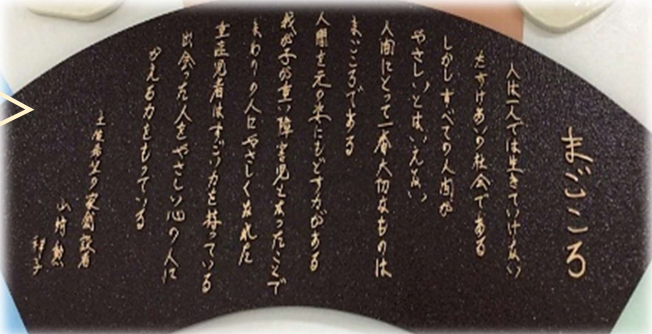 まごころ
人は一人では生きていけない
たすけあいの社会である
しかしすべての人間が
やさしいとは、いえない
人間にとって一番大切なものは
まごころである
人間を元の姿にもどす力がある
我が子が重い障害児となったことで
まわりの人にやさしくなれた
重症児者はすごい力を持っている
出会った人をやさしい心の人に
かえる力をもっている
土佐希望の家創設者
山崎 勲